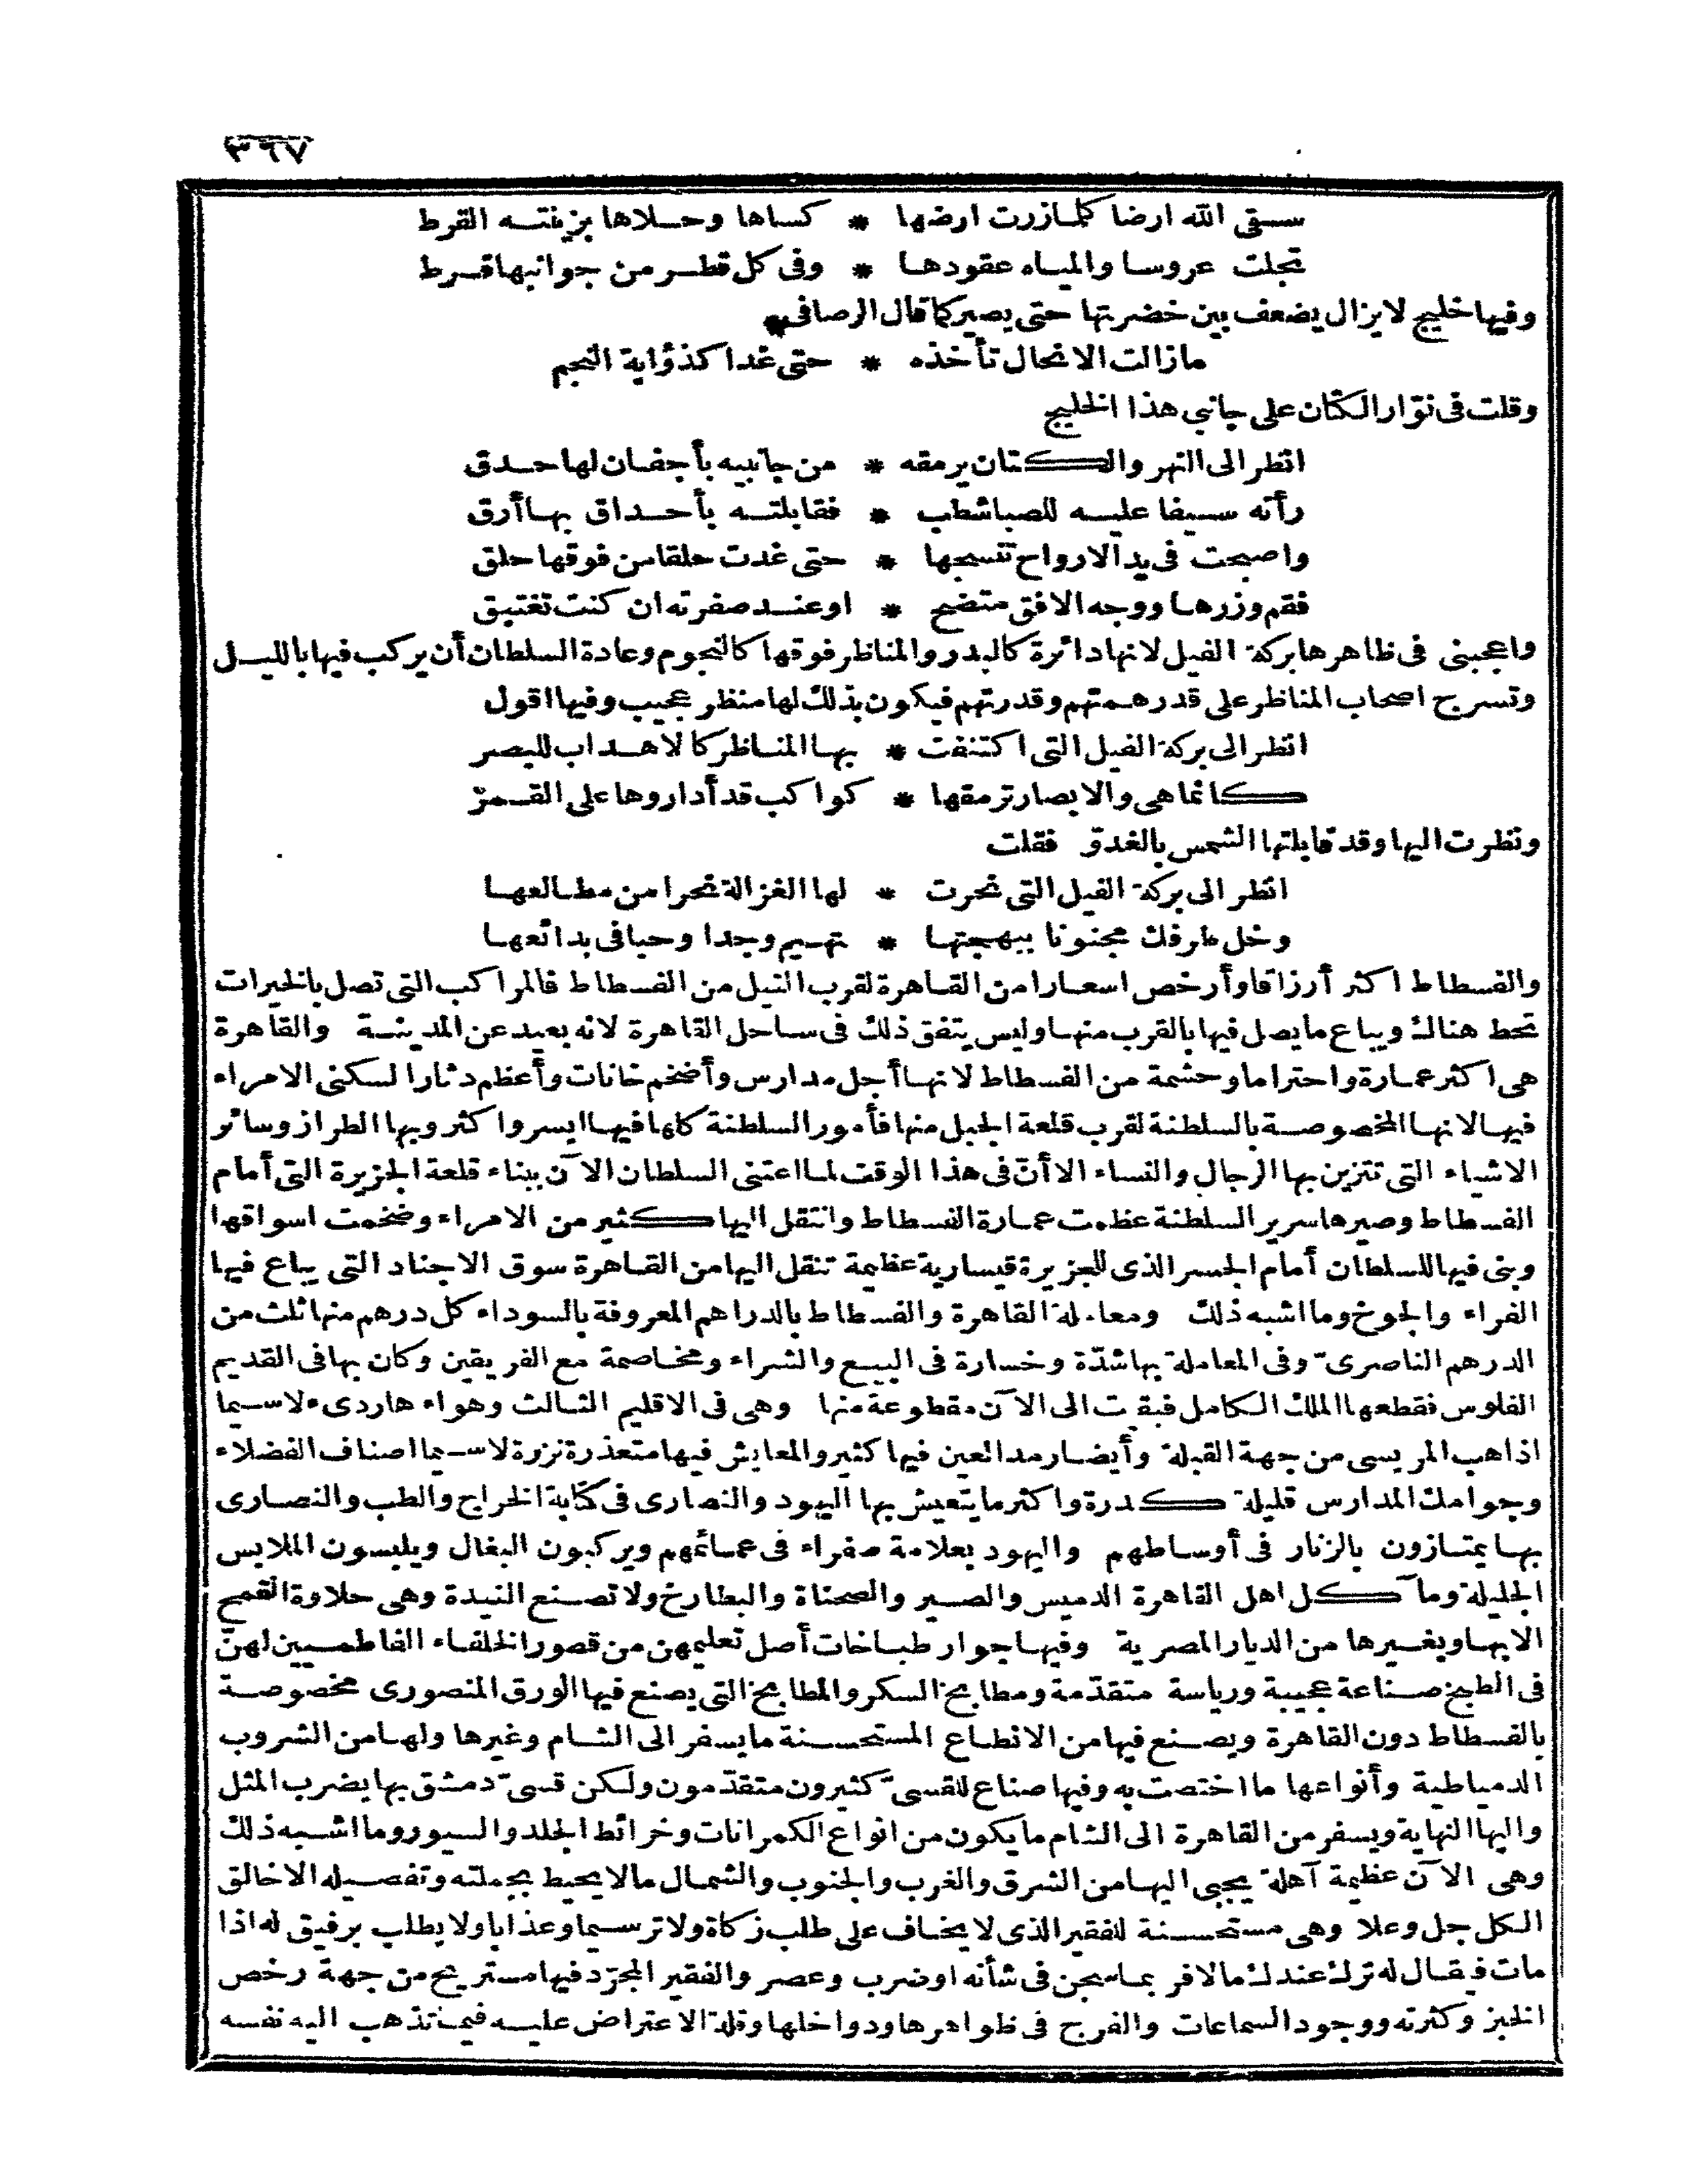 ٣٦٧
سقى الله ارضا كلما زرت ارضها * كساها وحلاها بزينته القرط
تجلت عروسا والمياه عقودها * وفى كل قطر من جوانبها قرط
وفيها خليج لا يزال يضعف بين خضرتها حتى يصير كما قال الرصافى
مازالت الانحال تأخذه * حتى غدا كذؤابة النجم
وقلت فى نوّار الكتان على جانبى هذا الخليج
انظر الى النهر والكتان يرمقه * من جانبيه بأجفان لها حدق
رأته سيفا عليه للصبا شطب * فقابلته بأحداق بها أرق
واصبحت فى يد الارواح تنسجها * حتى غدت حلقا من فوقها حلق
فقم وزرها ووجه الافق متضح * او عند صفرته ان كنت تغتبق
واعجبنى فى ظاهرها بركة الفيل لانها دائرة كالبدر والمناظر فوقها كالنجوم وعادة السلطان أن يركب فيها بالليل
وتسرج اصحاب المناظر على قدر همتهم وقدرتهم فيكون بذلك لها منظر عجيب وفيها اقول
انظر الى بركة الفيل التى اكتنفت * بها المناظر كالاهداب للبصر
كانما هى والابصار ترمقها * كواكب قد أداروها على القمر
ونظرت اليها وقد قابلتها الشمس بالغدوّ فقلت
انظر الى بركة الفيل التى نحرت * لها الغزالة نحرا من مطالعها
وخل طرفك مجنونا ببهجتها * تهيم وجدا وحبا فى بدائعها
والفسطاط اكثر أرزاقا وأرخص اسعارا من القاهرة لقرب النيل من الفسطاط فالمراكب التى تصل بالخيرات
تحط هناك ويباع ما يصل فيها بالقرب منها وليس يتفق ذلك فى ساحل القاهرة لانه بعيد عن المدينة والقاهرة
هى اكثر عمارة واحتراما وحشمة من الفسطاط لانها أجل مدارس وأضخم خانات وأعظم دثارا لسكنى الامراء
فيها لانها المخصوصة بالسلطنة لقرب قلعة الجبل منها فأمور السلطنة كلها فيها ايسر واكثر وبها الطراز وسائر
الاشياء التى تتزين بها الرجال والنساء الا أنّ فى هذا الوقت لما اعتنى السلطان الآن ببناء قلعة الجزيرة التى أمام
الفسطاط وصيرها سرير السلطنة عظمت عمارة الفسطاط وانتقل اليها كثير من الامراء وضخمت اسواقها
وبنى فيها للسلطان أمام الجسر الذى للجزيرة قيسارية عظيمة تنقل اليها من القاهرة سوق الاجناد التى يباع فيها
الفراء والجوخ وما اشبه ذلك ومعاملة القاهرة والفسطاط بالدراهم المعروفة بالسوداء كل درهم منها ثلث من
الدرهم الناصرىّ وفى المعاملة بها شدّة وخسارة فى البيع والشراء ومخاصمة مع الفريقين وكان بها فى القديم
الفلوس فقطعها الملك الكامل فبقيت الى الآن مقطوعة منها وهى فى الاقليم الثالث وهواءها ردىء لا سيما
اذا هب المريسى من جهة القبلة وأيضا رمد العين فيها كثير والمعايش فيها متعذرة نزرة لا سيما اصناف الفضلاء
وجوامك المدارس قليلة كدرة واكثر ما يتعيش بها اليهود والنصارى فى كتابة الخراج والطب والنصارى
بها يمتازون بالزنار فى أوساطهم واليهود بعلامة صفراء فى عمائمهم ويركبون البغال ويلبسون الملابس
الجليلة ومآكل اهل القاهرة الدميس والصير والصحناة والبطارخ ولا تصنع النيدة وهى حلاوة القمح
الا بها وبغيرها من الديار المصرية وفيها جوار طباخات أصل تعليمهن من قصور الخلفاء الفاطميين لهنّ
فى الطبخ صناعة عجيبة ورياسة متقدّمة ومطابخ السكر والمطابخ التى يصنع فيها الورق المنصورى مخصوصة
بالفسطاط دون القاهرة ويصنع فيها من الانطاع المستحسنة ما يسفر الى الشام وغيرها ولها من الشروب
الدمياطية وأنواعها ما اختصت به وفيها صناع للقسىّ كثيرون متقدّمون ولكن قسىّ دمشق بها يضرب المثل
واليها النهاية ويسفر من القاهرة الى الشام ما يكون من انواع الكمرانات وخرائط الجلد والسيور وما اشبه ذلك
وهى الآن عظيمة آهلة يجبى اليها من الشرق والغرب والجنوب والشمال ما لا يحيط بجملته وتفصيله الا خالق
الكل جل وعلا وهى مستحسنة للفقير الذى لا يخاف على طلب زكاة ولا ترسيما وعذابا ولا يطلب برفيق له اذا
مات فيقال له ترك عندك مالا فربما سجن فى شأنه او ضرب وعصر والفقير المجرّد فيها مستريح من جهة رخص
الخبز وكثرته ووجود السماعات والفرج فى ظواهرها ودواخلها وقلة الاعتراض عليه فيما تذهب اليه نفسه